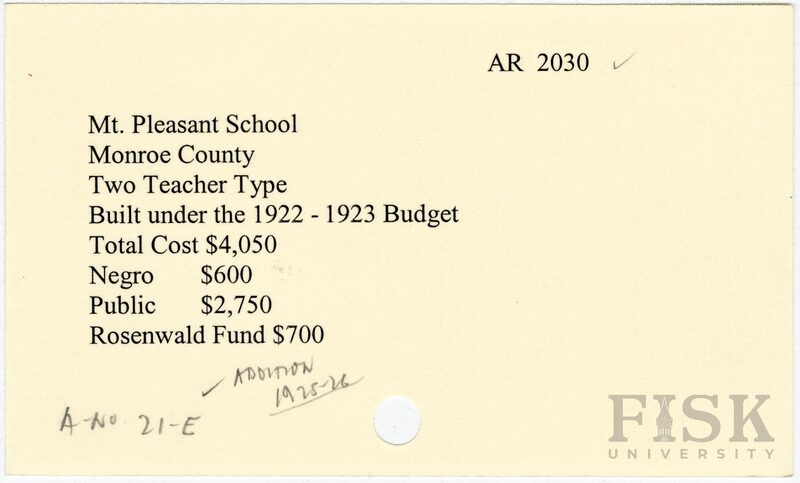 AR 2030 ✓
Mt. Pleasant School
Monroe County
Two Teacher Type
Built under the 1922 - 1923 Budget
Total Cost $4,050
Negro $600
Public $2,750
Rosenwald Fund $700
✓ ADDITION
1925-26
A-No 21-E
FISK
UNIVERSITY